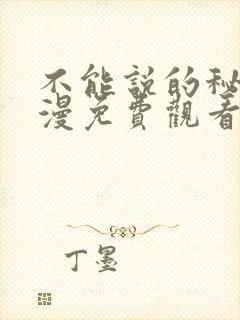 不能說的秘
漫免費觀看
丁墨